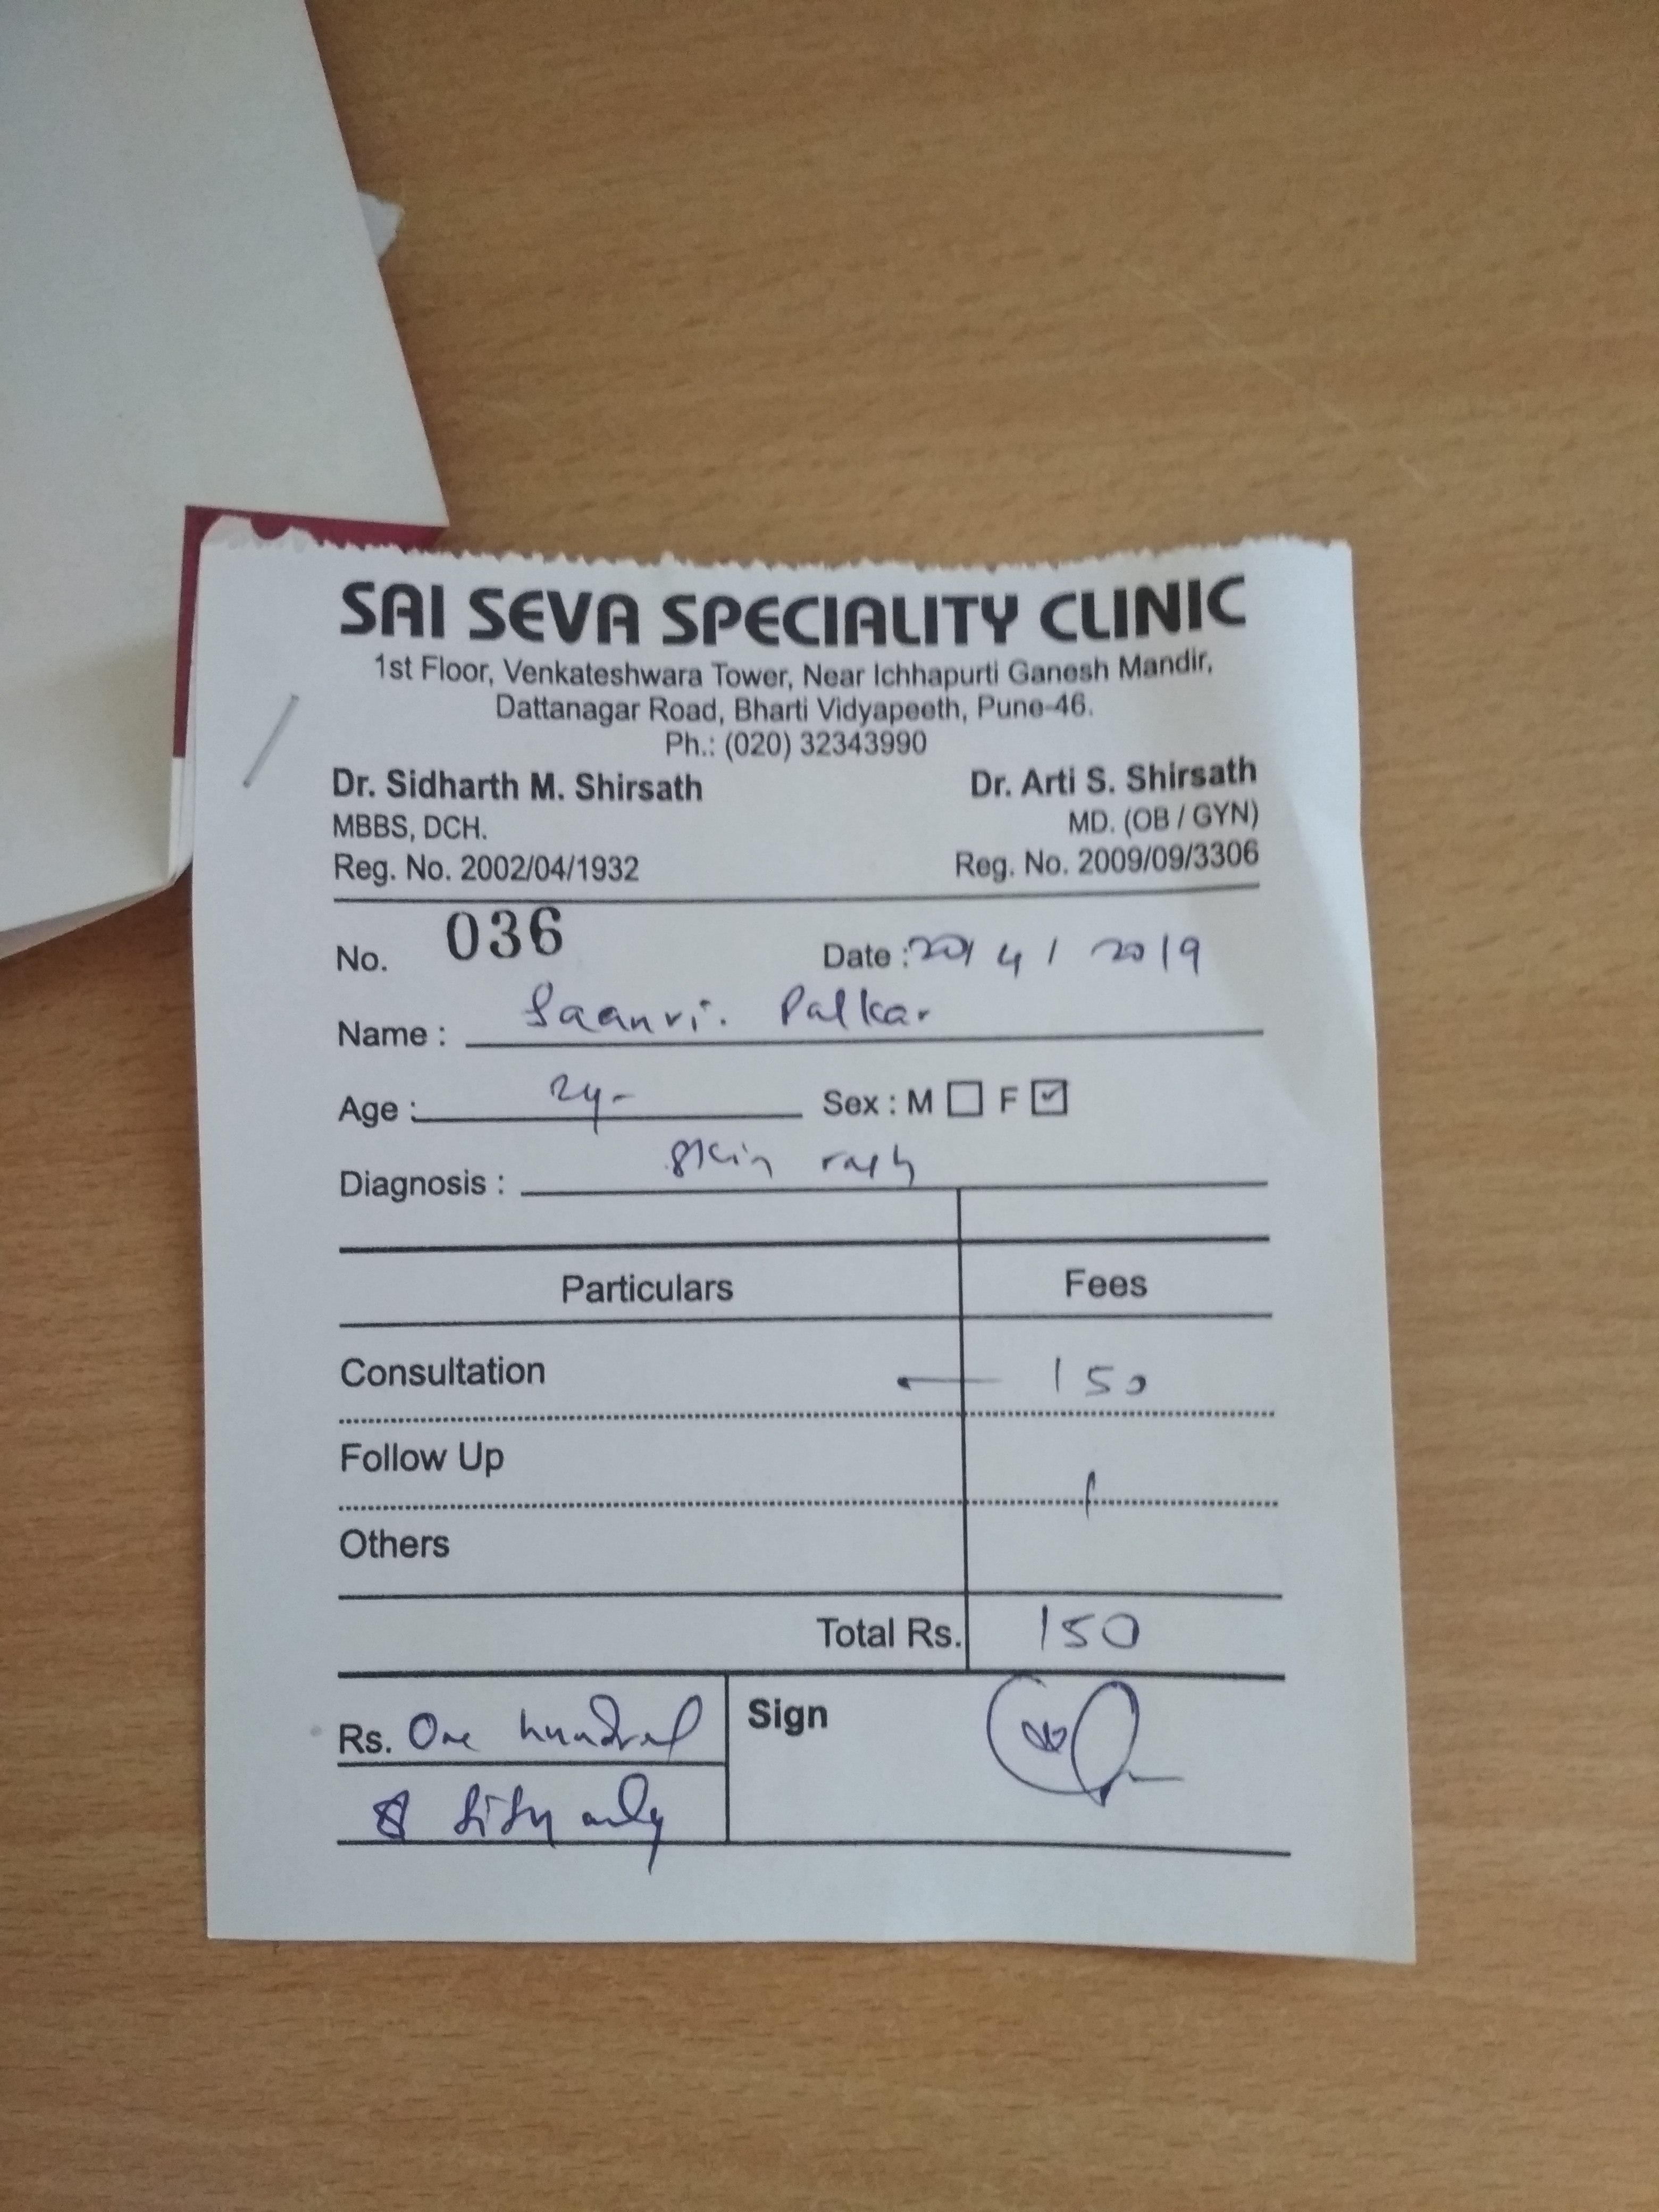 SAI SEVA SPECIALITY CLINIC
1st Floor, Venkateshwara Tower, Near Ichhapurti Ganesh Mandir,
Dattanagar Road, Bharti Vidyapeeth, Pune-46.
Ph.: (020) 32343990
Dr. Sidharth M. Shirsath Dr. Arti S. Shirsath
MBBS, DCH. MD. (OB / GYN)
Reg. No. 2002/04/1932 Reg. No. 2009/09/3306
No. 036 Date : 20/4/2019
Name : Saanvi. Palkar
Age : 2y- Sex : M F
Diagnosis : Skin rash
Particulars Fees
Consultation 150
Follow Up
Others
Total Rs. 150
Rs. One hundred Sign
& fifty only